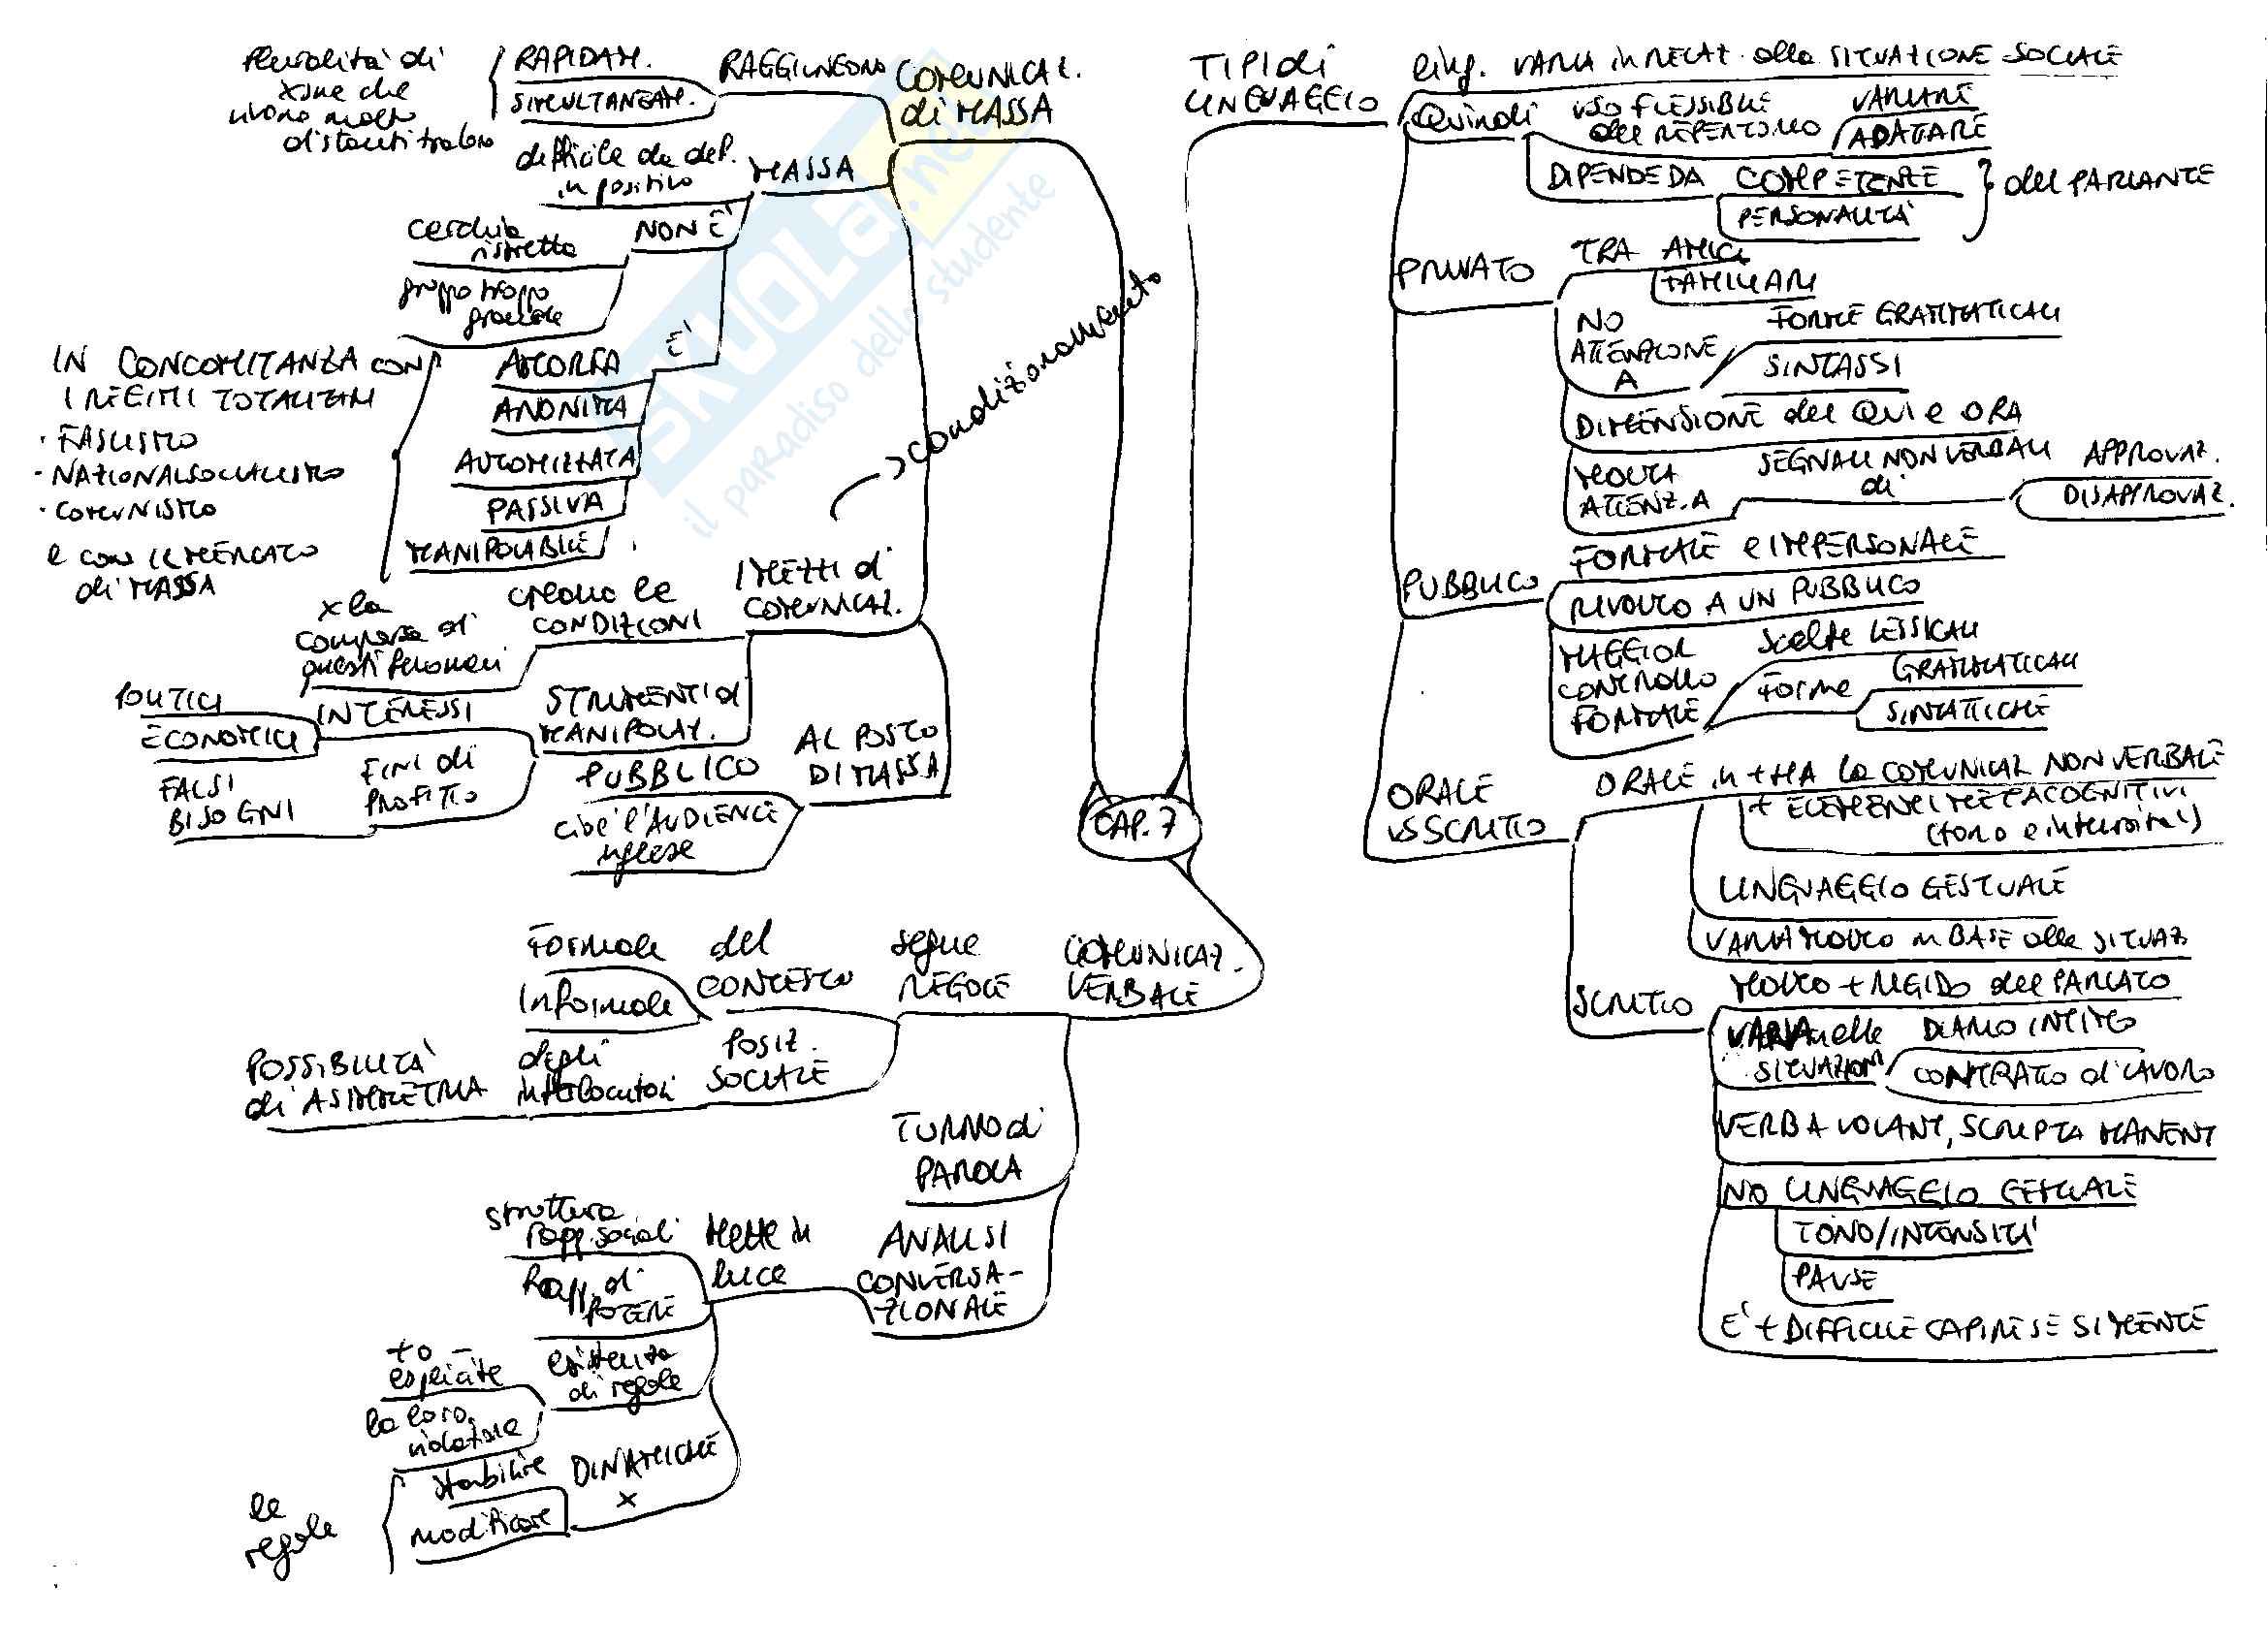 Pluralità di
xsone che
vivono molto
distanti tra loro
RAPIDAM.
SIMULTANEAM.
RAGGIUNGONO
COMUNICAZ.
di MASSA
difficile da def.
in positivo
MASSA
NON È
cerchia
ristretta
gruppo troppo
grande
È
AMORFA
ANONIMA
AUTOMIZZATA
PASSIVA
MANIPOLABILE
IN CONCOMITANZA CON
I REGIMI TOTALITARI
· FASCISMO
· NAZIONALSOCIALISMO
· COMUNISMO
e con il MERCATO
di MASSA
condizionamento
I MEZZI di
COMUNICAZ.
creano le
CONDIZIONI
x la
comparsa di
questi fenomeni
STRUMENTI di
MANIPOLAZ.
INTERESSI
POLITICI
ECONOMICI
FINI di
PROFITTO
FALSI
BISOGNI
AL POSTO
DI MASSA
PUBBLICO
cioè l'AUDIENCE
inglese
CAP. 7
COMUNICAZ.
VERBALE
segue
REGOLE
del
CONTESTO
Formale
Informale
POSIZ.
SOCIALE
degli
interlocutori
POSSIBILITÀ
di ASIMMETRIA
TURNO di
PAROLA
ANALISI
CONVERSA-
ZIONALE
Mette in
luce
struttura
rapp. sociali
Rapp. di
POTERE
esistenza
di regole
+ o -
esplicite
la loro
violazione
DINAMICHE
x
stabilire
modificare
le
regole
TIPI di
LINGUAGGIO
ling. VARIA in RELAZ. alla SITUAZIONE SOCIALE
Quindi
USO FLESSIBILE
del REPERTORIO
VARIARE
ADATTARE
DIPENDE DA
COMPETENZE
PERSONALITÀ
del PARLANTE
PRIVATO
TRA AMICI
FAMILIARI
NO
ATTENZIONE
A
FORME GRAMMATICALI
SINTASSI
DIMENSIONE del QUI e ORA
MOLTA
ATTENZ. A
SEGNALI NON VERBALI
di
APPROVAZ.
DISAPPROVAZ.
PUBBLICO
FORMALE e IMPERSONALE
RIVOLTO A UN PUBBLICO
MAGGIOR
CONTROLLO
FORMALE
scelte LESSICALI
Forme
GRAMMATICALI
SINTATTICHE
ORALE
vs SCRITTO
ORALE
HA la COMUNICAZ NON VERBALE
+ ELEMENTI METACOGNITIVI
(tono e intensità)
LINGUAGGIO GESTUALE
VARIA MOLTO in BASE alle SITUAZ
SCRITTO
MOLTO + RIGIDO del PARLATO
VARIA nelle
SITUAZIONI
DIARIO INTIMO
CONTRATTO di LAVORO
VERBA VOLANT, SCRIPTA MANENT
NO LINGUAGGIO GESTUALE
TONO/INTENSITÀ
PAUSE
È + DIFFICILE CAPIRE SE SI MENTE
SKUOLA.net
il paradiso dello studente